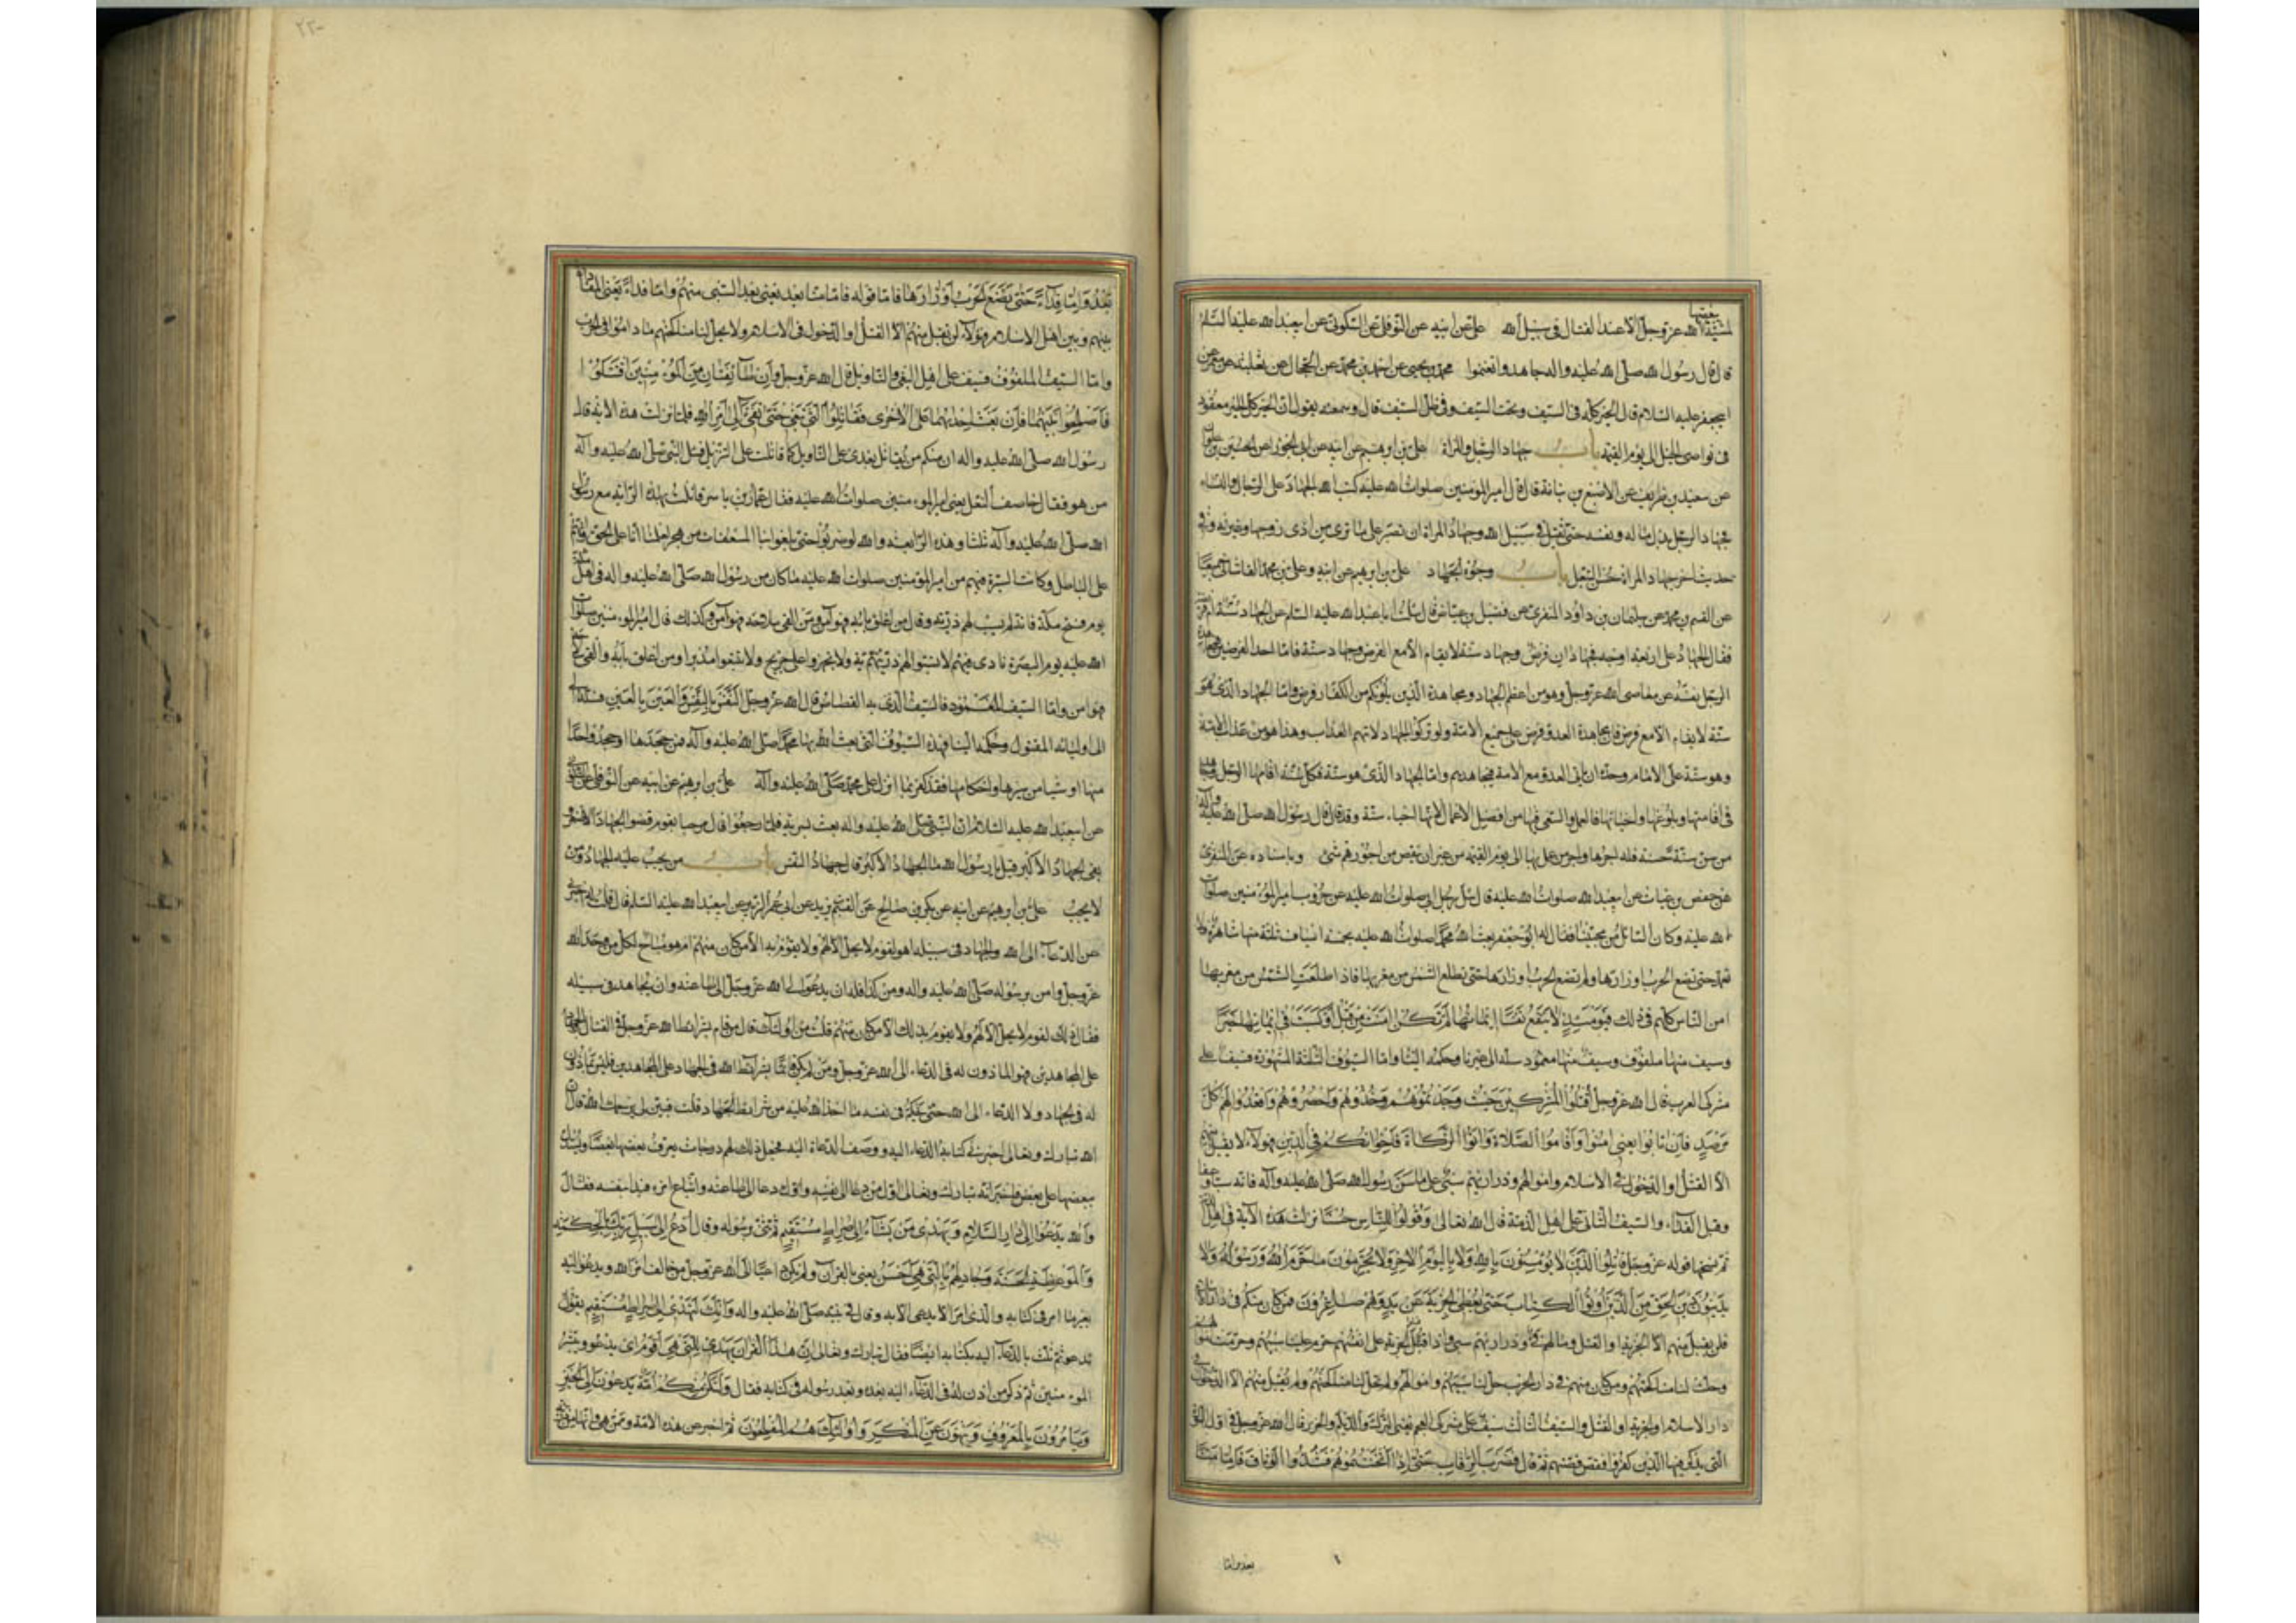 لمشية الله عز وجل الا عند القتال فى سبيل الله على عن ابيه عن النوفلى عن السكونى عن ابيعبد الله عليه السلم
قال قال رسول الله صلى الله عليه واله جاهدوا تغنموا محمد بن يحيى عن احمد بن محمد عن الحجال عن ثعلبه عن معمر عن
ابيجعفر عليه السلام قال الخير كله فى السيف وتحت السيف وفى ظل السيف قال وسمعته يقول ان الخير كل الخير معقود
فى نواصى الخيل الى يوم القيمه باب جهاد الرجل والمراة على بن ابرهيم عن ابيه عن ابى الجوزا عن الحسين بن علوان
عن سعد بن طريف عن الاصبغ بن نباتة قال قال امير المومنين صلوات الله عليه كتب الله الجهاد على الرجال والنساء
فجهاد الرجل بذل ماله ونفسه حتى يقتل فى سبيل الله وجهاد المراة ان تصبر على ما ترى من اذى زوجها وغيرته وفى
حديث اخر جهاد المراة حسن التبعل باب وجوه الجهاد على بن ابرهيم عن ابيه وعلى بن محمد القاشانى جميعا
عن القسم بن محمد عن سليمان بن داود المنقرى عن فضيل بن عياض قال سالت ابا عبد الله عليه السلم عن الجهاد سنة ام فريضة
فقال الجهاد على اربعة اوجه فجهادان فرض وجهاد سنة لا يقام الا مع الفرض وجهاد سنة فاما احد الفرضين فمجاهدة
الرجل نفسه عن معاصى الله عز وجل وهو من اعظم الجهاد ومجاهدة الذين يلونكم من الكفار فرض واما الجهاد الذى هو
سنة لا يقام الا مع فرض فان مجاهدة العدو فرض على جميع الامة ولو تركوا الجهاد لاتيهم العذاب وهذا هو من عذاب الامة
وهو سنة على الامام وحده ان ياتى العدو مع الامة فيجاهدهم واما الجهاد الذى هو سنة فكل سنة اقامها الرجل وجاهد
فى اقامتها وبلوغها واحيائها فالعمل والسعى فيها من افضل الاعمال لانها احياء سنة وقد قال قال رسول الله صلى الله عليه واله
من سن سنة حسنة فله اجرها واجر من عمل بها الى يوم القيمه من غير ان ينقص من اجورهم شئ وباسناده عن المنقرى
عن حفص بن غياث عن ابيعبد الله صلوات الله عليه قال سئل رجل ابى صلوات الله عليه عن حروب امير المومنين صلوات
الله عليه وكان السائل من محبينا فقال له ابو جعفر بعث الله محمدا صلوات الله عليه بخمسة اسياف ثلثة منها شاهرة فلا
تغمد حتى تضع الحرب اوزارها ولم تضع الحرب اوزارها حتى تطلع الشمس من مغربها فاذا طلعت الشمس من مغربها
امن الناس كلهم فى ذلك فيومئذ لا ينفع نفسا ايمانها لم تكن امنت من قبل او كسبت فى ايمانها خيرا
وسيف منها ملفوف وسيف منها مغمود سله الى غيرنا وحكمه الينا واما السيوف الثلثة المشهورة فسيف على
مشركى العرب قال الله عز وجل اقتلوا المشركين حيث وجدتموهم وخذوهم واحصروهم واقعدوا لهم كل
مرصد فان تابوا يعنى امنوا واقاموا الصلاة واتوا الزكاة فاخوانكم فى الدين فهولاء لا يقبل منهم
الا القتل او الدخول فى الاسلام واموالهم وذراريهم سبى على ما سن رسول الله صلى الله عليه وآله فانه سبا وعفا
وقبل الفداء والسيف الثانى على اهل الذمة قال الله تعالى وقولوا للناس حسنا نزلت هذه الآية فى اهل الذمة
ثم نسخها قوله عز وجل قاتلوا الذين لا يؤمنون بالله ولا باليوم الاخر ولا يحرمون ما حرم الله ورسوله ولا
يدينون دين الحق من الذين اوتوا الكتاب حتى يعطوا الجزية عن يد وهم صاغرون فمن كان منكم فى دار الاسلام
فلن يقبل منهم الا الجزية او القتل وما لهم فئ وذراريهم سبى فاذا قبلوا الجزية على انفسهم حرم علينا سبيهم وحرمت اموالهم
وحلت لنا مناكحتهم ومن كان منهم فى دار الحرب حل لنا سبيهم واموالهم ولم تحل لنا مناكحتهم ولم يقبل منهم الا الدخول فى
دار الاسلام او الجزية او القتل والسيف الثالث سيف على مشركى العجم يعنى الترك والديلم والخزر قال الله عز وجل فى اول السورة
التى يذكر فيها الذين كفروا فقص قصتهم ثم قال فضرب الرقاب حتى اذا اثخنتموهم فشدوا الوثاق فاما منا
بعد واما
بعد واما فداء حتى تضع الحرب اوزارها فاما قوله فاما منا بعد يعنى بعد السبى منهم واما فداء يعنى المفاداة
بينهم وبين اهل الاسلام فهؤلاء لن يقبل منهم الا القتل او الدخول فى الاسلام ولا يحل لنا مناكحتهم ما داموا فى دار الحرب
واما السيف الملفوف فسيف على اهل البغى والتاويل قال الله عز وجل وان طائفتان من المؤمنين اقتتلوا
فاصلحوا بينهما فان بغت احديهما على الاخرى فقاتلوا التى تبغى حتى تفئ الى امر الله فلما نزلت هذه الاية قال
رسول الله صلى الله عليه واله ان منكم من يقاتل بعدى على التاويل كما قاتلت على التنزيل فسئل النبى صلى الله عليه وآله
من هو فقال خاصف النعل يعنى امير المومنين صلوات الله عليه فقال عمار بن ياسر قاتلت بهذه الراية مع رسول
الله صلى الله عليه وآله ثلثا وهذه الرابعة والله لو ضربونا حتى بلغوا بنا السعفات من هجر لعلمنا انا على الحق وانهم
على الباطل وكانت السيرة فيهم من امير المؤمنين صلوات الله عليه ما كان من رسول الله صلى الله عليه واله فى اهل مكة
يوم فتح مكة فانه لم يسب لهم ذرية وقال من اغلق بابه فهو آمن ومن القى سلاحه فهو آمن وكذلك قال امير المومنين صلوات
الله عليه يوم البصرة نادى فيهم لا تسبوا لهم ذرية ولا تجهزوا على جريح ولا تتبعوا مدبرا ومن اغلق بابه والقى سلاحه
فهو امن واما السيف المغمود فالسيف الذى به القصاص قال الله عز وجل النفس بالنفس والعين بالعين فسله
الى اولياء المقتول وحكمه الينا فهذه السيوف التى بعث الله بها محمدا صلى الله عليه وآله فمن جحدها او جحد واحدا
منها او شيا من سيرها واحكامها فقد كفر بما انزل على محمد صلى الله عليه وآله على بن ابرهيم عن ابيه عن النوفلى عن السكونى
عن ابيعبد الله عليه السلام ان النبى صلى الله عليه واله بعث بسرية فلما رجعوا قال مرحبا بقوم قضوا الجهاد الاصغر
بقى الجهاد الاكبر قيل يا رسول الله ما الجهاد الاكبر قال جهاد النفس باب من يجب عليه الجهاد ومن
لا يجب على بن ابرهيم عن ابيه عن بكر بن صالح عن القسم بن بريد عن ابى عمر الزبيرى عن ابيعبد الله عليه السلم قال قلت له اخبرنى
عن الدعاء الى الله والجهاد فى سبيله اهو لقوم لا يحل الا لهم ولا يقوم به الا من كان منهم ام هو مباح لكل من وحد الله
عز وجل وامن برسوله صلى الله عليه واله ومن كان كذا فله ان يدعوا الى الله عز وجل الى طاعته وان يجاهد فى سبيله
فقال ذلك لقوم لا يحل الا لهم ولا يقوم بذلك الا من كان منهم قلت من اولئك قال من قام بشرائط الله عز وجل فى القتال والجهاد
على المجاهدين فهو الماذون له فى الدعاء الى الله عز وجل ومن لم يكن قائما بشرائط الله فى الجهاد على المجاهدين فليس بماذون
له فى الجهاد ولا الدعاء الى الله حتى يحكم فى نفسه ما اخذ الله عليه من شرائط الجهاد قلت فبين لى يرحمك الله قال ان
الله تبارك وتعالى اخبر فى كتابه الدعاء اليه ووصف الدعاة اليه فجعل ذلك لهم درجات يعرف بعضها بعضا ويستدل
ببعضها على بعض فاخبر انه تبارك وتعالى اول من دعا الى نفسه ودعا الى طاعته واتباع امره فبدا بنفسه فقال
والله يدعوا الى دار السلام ويهدى من يشاء الى صراط مستقيم ثم ثنى برسوله وقال ادع الى سبيل ربك بالحكمة
والموعظة الحسنة وجادلهم بالتى هى احسن يعنى بالقرآن ولم يكن داعيا الى الله عز وجل من خالف امر الله ويدعو اليه
بغير ما امر فى كتابه والذى امر الا يدعى الا به وقال فى نبيه صلى الله عليه واله وانك لتهدى الى صراط مستقيم يقول
تدعو ثم ثلث بالدعاء اليه بكتابه ايضا فقال تبارك وتعالى ان هذا القرآن يهدى للتى هى اقوم اى يدعو ويبشر
المومنين ثم ذكر من اذن له فى الدعاء اليه بعده وبعد رسوله فى كتابه فقال ولتكن منكم امة يدعون الى الخير
ويامرون بالمعروف وينهون عن المنكر واولئك هم المفلحون ثم اخبر عن هذه الامة وممن هى وانها من ذرية